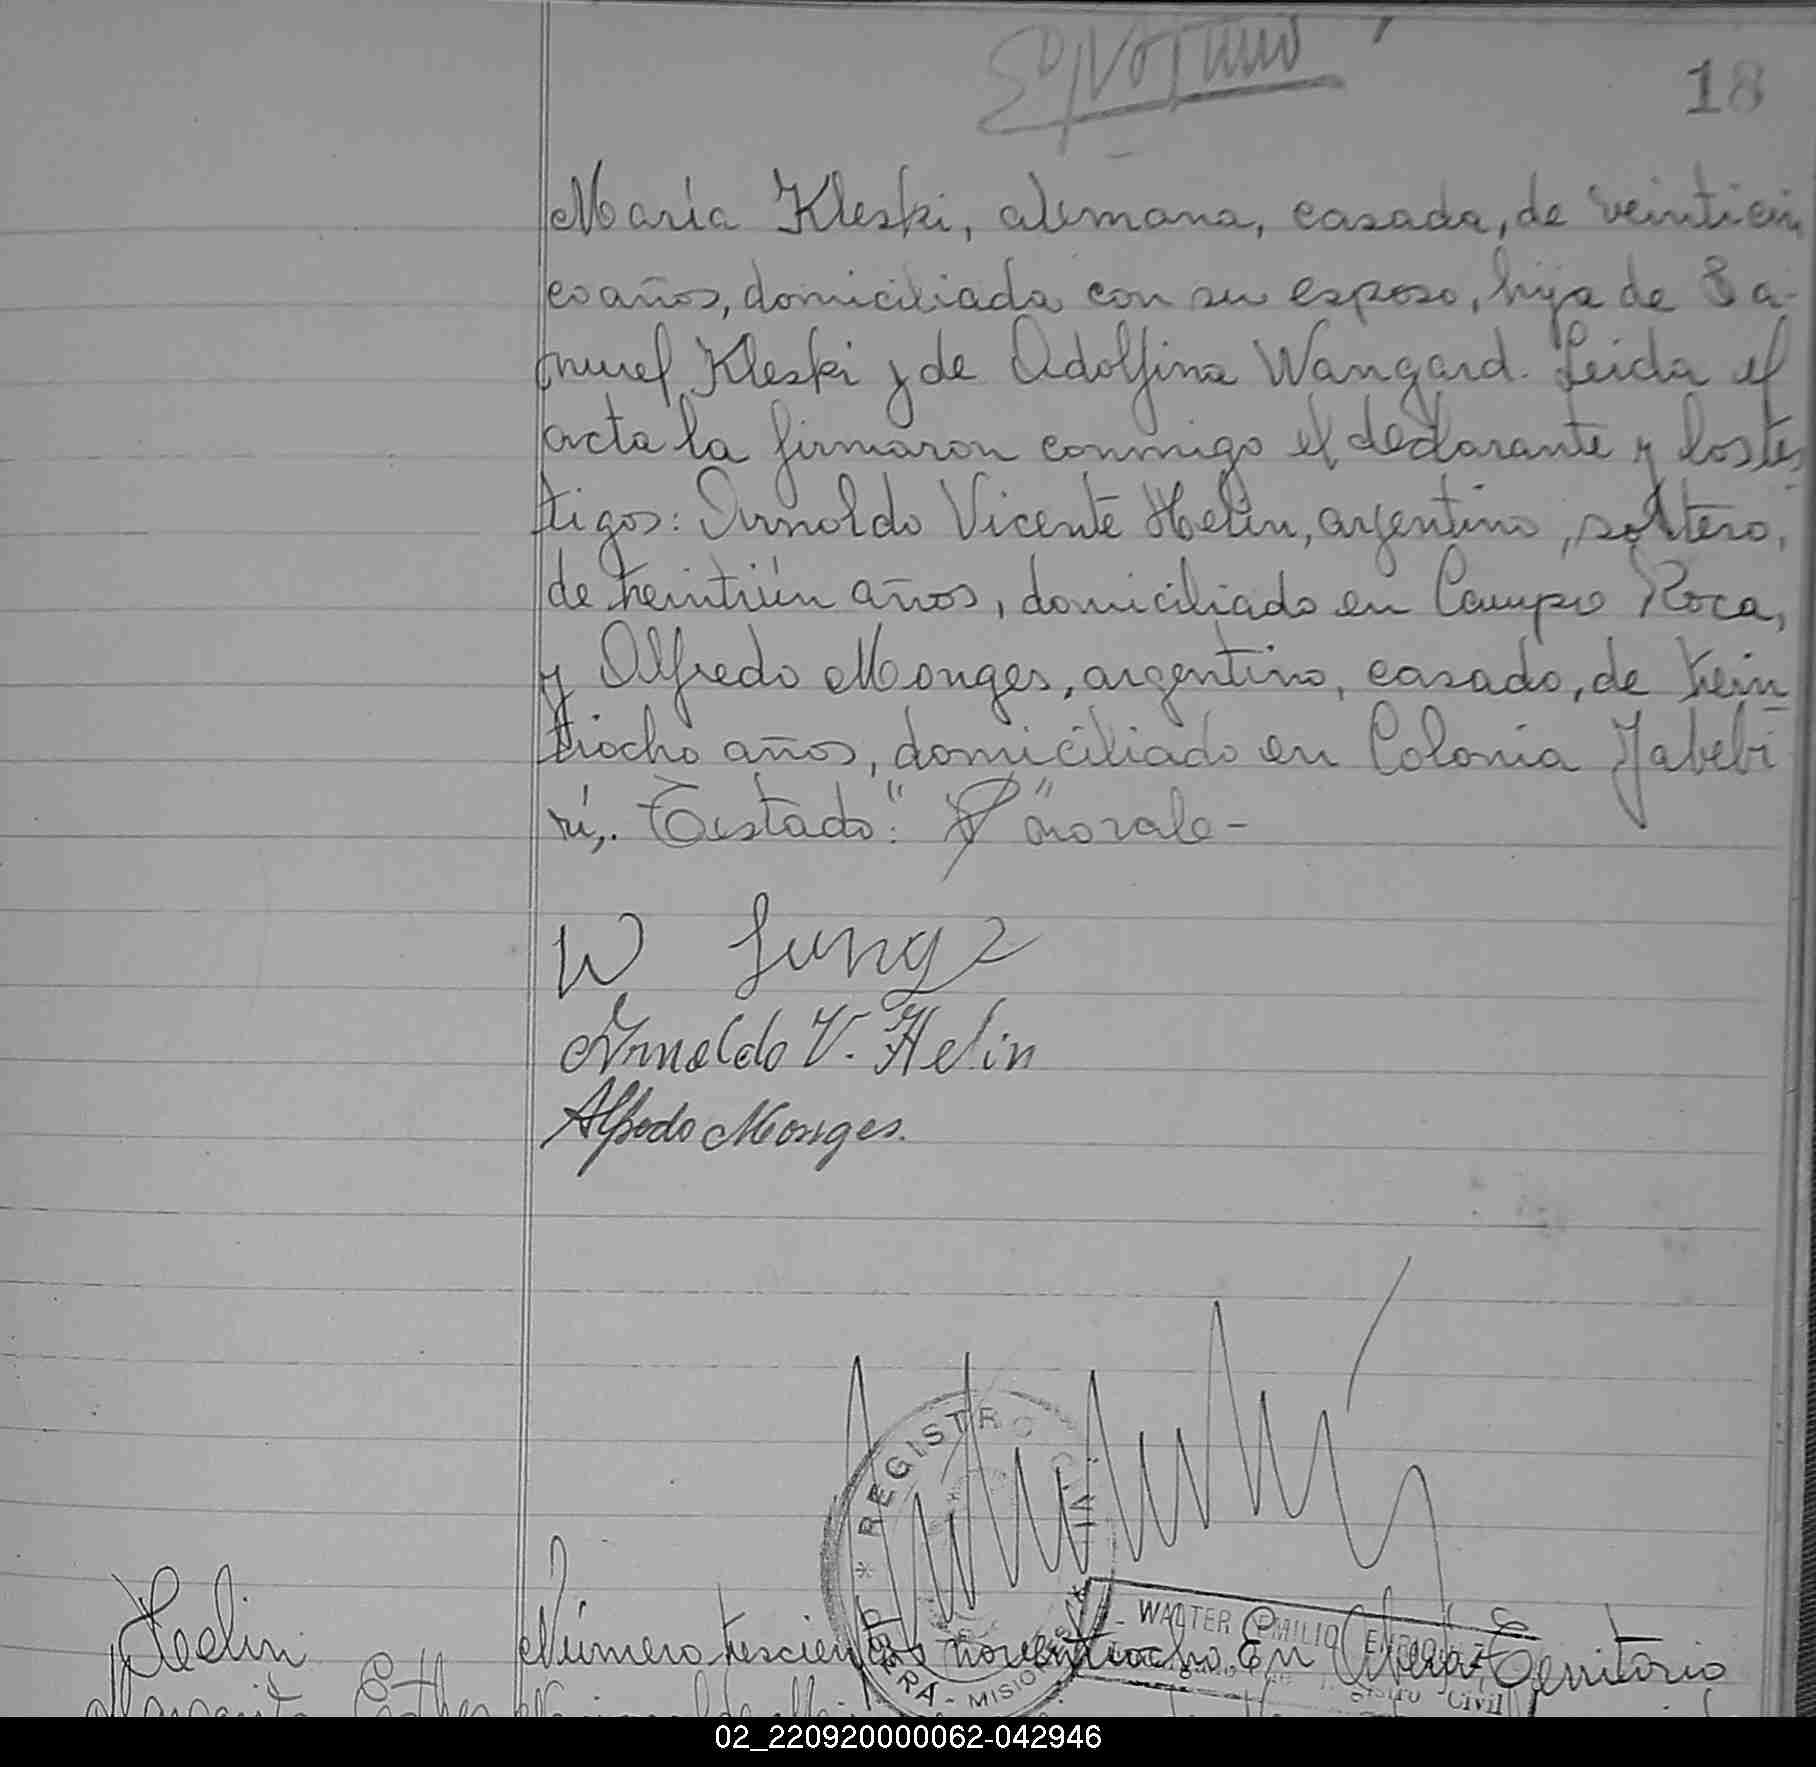 18
María Kleski, alemana, casada, de veinticin
co años, domiciliada con su esposo, hija de Sa-
muel Kleski y de Adolfina Wangard. Leida el
acta la firmaron conmigo el declarante y los tes
tigos: Arnoldo Vicente Helin, argentino, soltero,
de treintiún años, domiciliado en Campo Roca,
y Alfredo Monges, argentino, casado, de trein
tiocho años, domiciliado en Colonia Yabebi
rí,. Testado: " " no vale-
W Jung
Arnoldo V. Helin
Alfredo Monges.
* REGISTRO CIVIL *
CERRO CORA - MISIONES
WALTER EMILIO
Registro Civil
Helin
Número trescientos noventiocho. En Territorio
Margarita Esther Nacional de
02_220920000062-042946